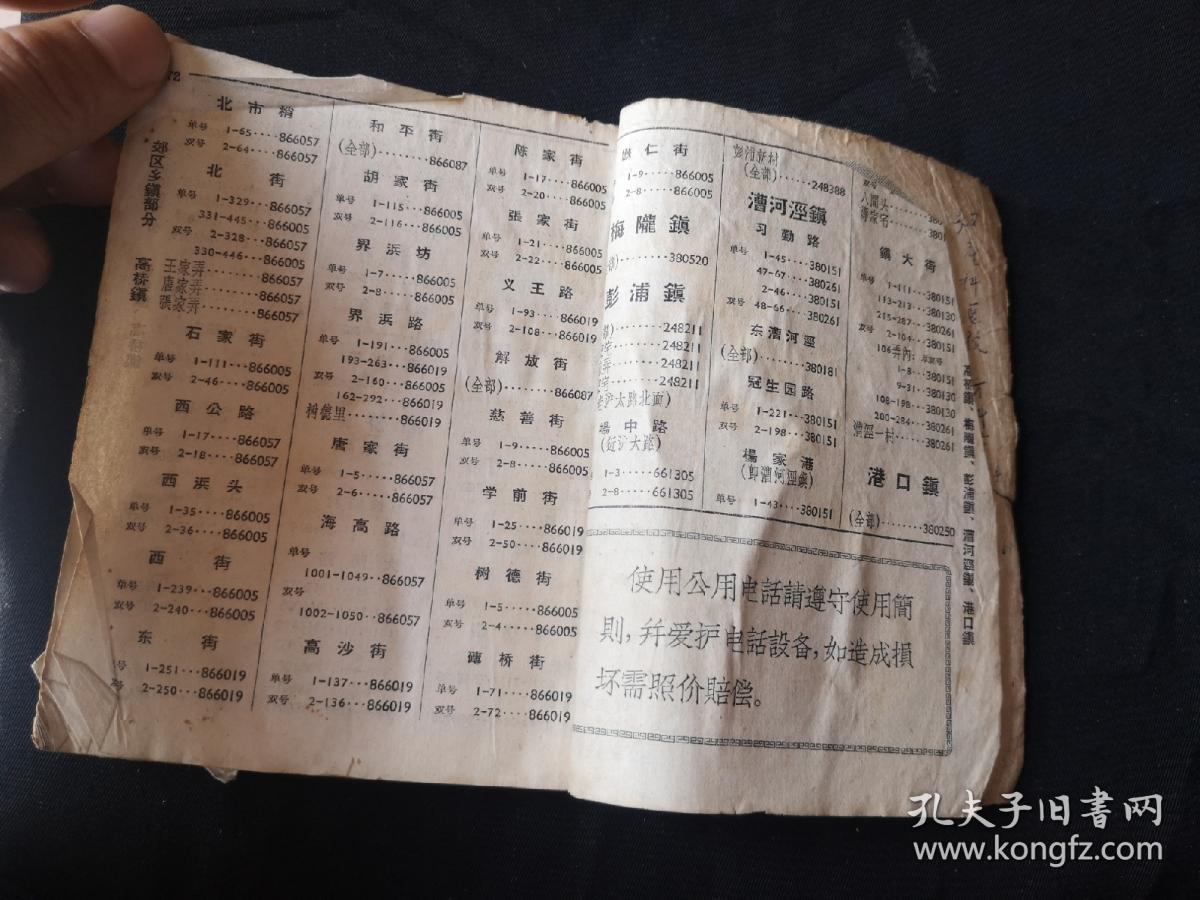 72
郊区乡鎭部分
高桥鎭
北市梢
单号 1-65····866057
双号 2-64····866057
北街
单号 1-329···866057
331-445···866005
双号 2-328···866057
330-446···866005
王家弄·······866057
唐家弄·······866057
張家弄·······866057
石家街
单号 1-111···866005
双号 2-46····866005
西公路
单号 1-17····866057
双号 2-18····866057
西浜头
单号 1-35····866005
双号 2-36····866005
西街
单号 1-239···866005
双号 2-240···866005
东街
号 1-251···866019
号 2-250···866019
和平街
(全部)········866087
胡家街
单号 1-115···866005
双号 2-116···866005
界浜坊
单号 1-7·····866005
双号 2-8·····866005
界浜路
单号 1-191···866005
193-263···866019
双号 2-160···866005
162-292···866019
树德里·······866019
唐家街
单号 1-5·····866057
双号 2-6·····866057
海高路
单号
1001-1049··866057
双号
1002-1050··866057
高沙街
单号 1-137···866019
双号 2-136···866019
陈家街
单号 1-17····866005
双号 2-20····866005
張家街
单号 1-21····866005
双号 2-22····866005
义王路
单号 1-93····866019
双号 2-108···866019
解放街
(全部)········866087
慈善街
单号 1-9·····866005
双号 2-8·····866005
学前街
单号 1-25····866019
双号 2-50····866019
树德街
单号 1-5·····866005
双号 2-4·····866005
磚桥街
单号 1-71····866019
双号 2-72····866019
仁街
1-9·····866005
2-8·····866005
梅隴鎭
部)········380520
彭浦鎭
部)········248211
248211
弄········248211
248211
沪太路北面)
場中路
(近沪太路)
1-3·····661305
2-8·····661305
彭浦新村
(全部)······248388
漕河涇鎭
习勤路
单号 1-45····380151
47-67····380261
2-46····380151
双号 48-66····380261
东漕河涇
(全部)········380181
冠生园路
单号 1-221···380151
双号 2-198···380151
楊家港
(即漕河涇鎭)
单号 1-43····380151
双号
鎭大街
单号 1-111···380151
113-213···380130
215-287···380261
双号 2-104···380151
106弄內:单双号
1-8·····380151
9-31····380130
108-198···380130
200-284···380261
漕涇一村·····380261
港口鎭
(全部)········380250
高桥鎭、梅隴鎭、彭浦鎭、漕河涇鎭、港口鎭
使用公用电話請遵守使用簡
則,幷爱护电話設备,如造成損
坏需照价賠偿。
孔夫子旧書网
www.kongfz.com